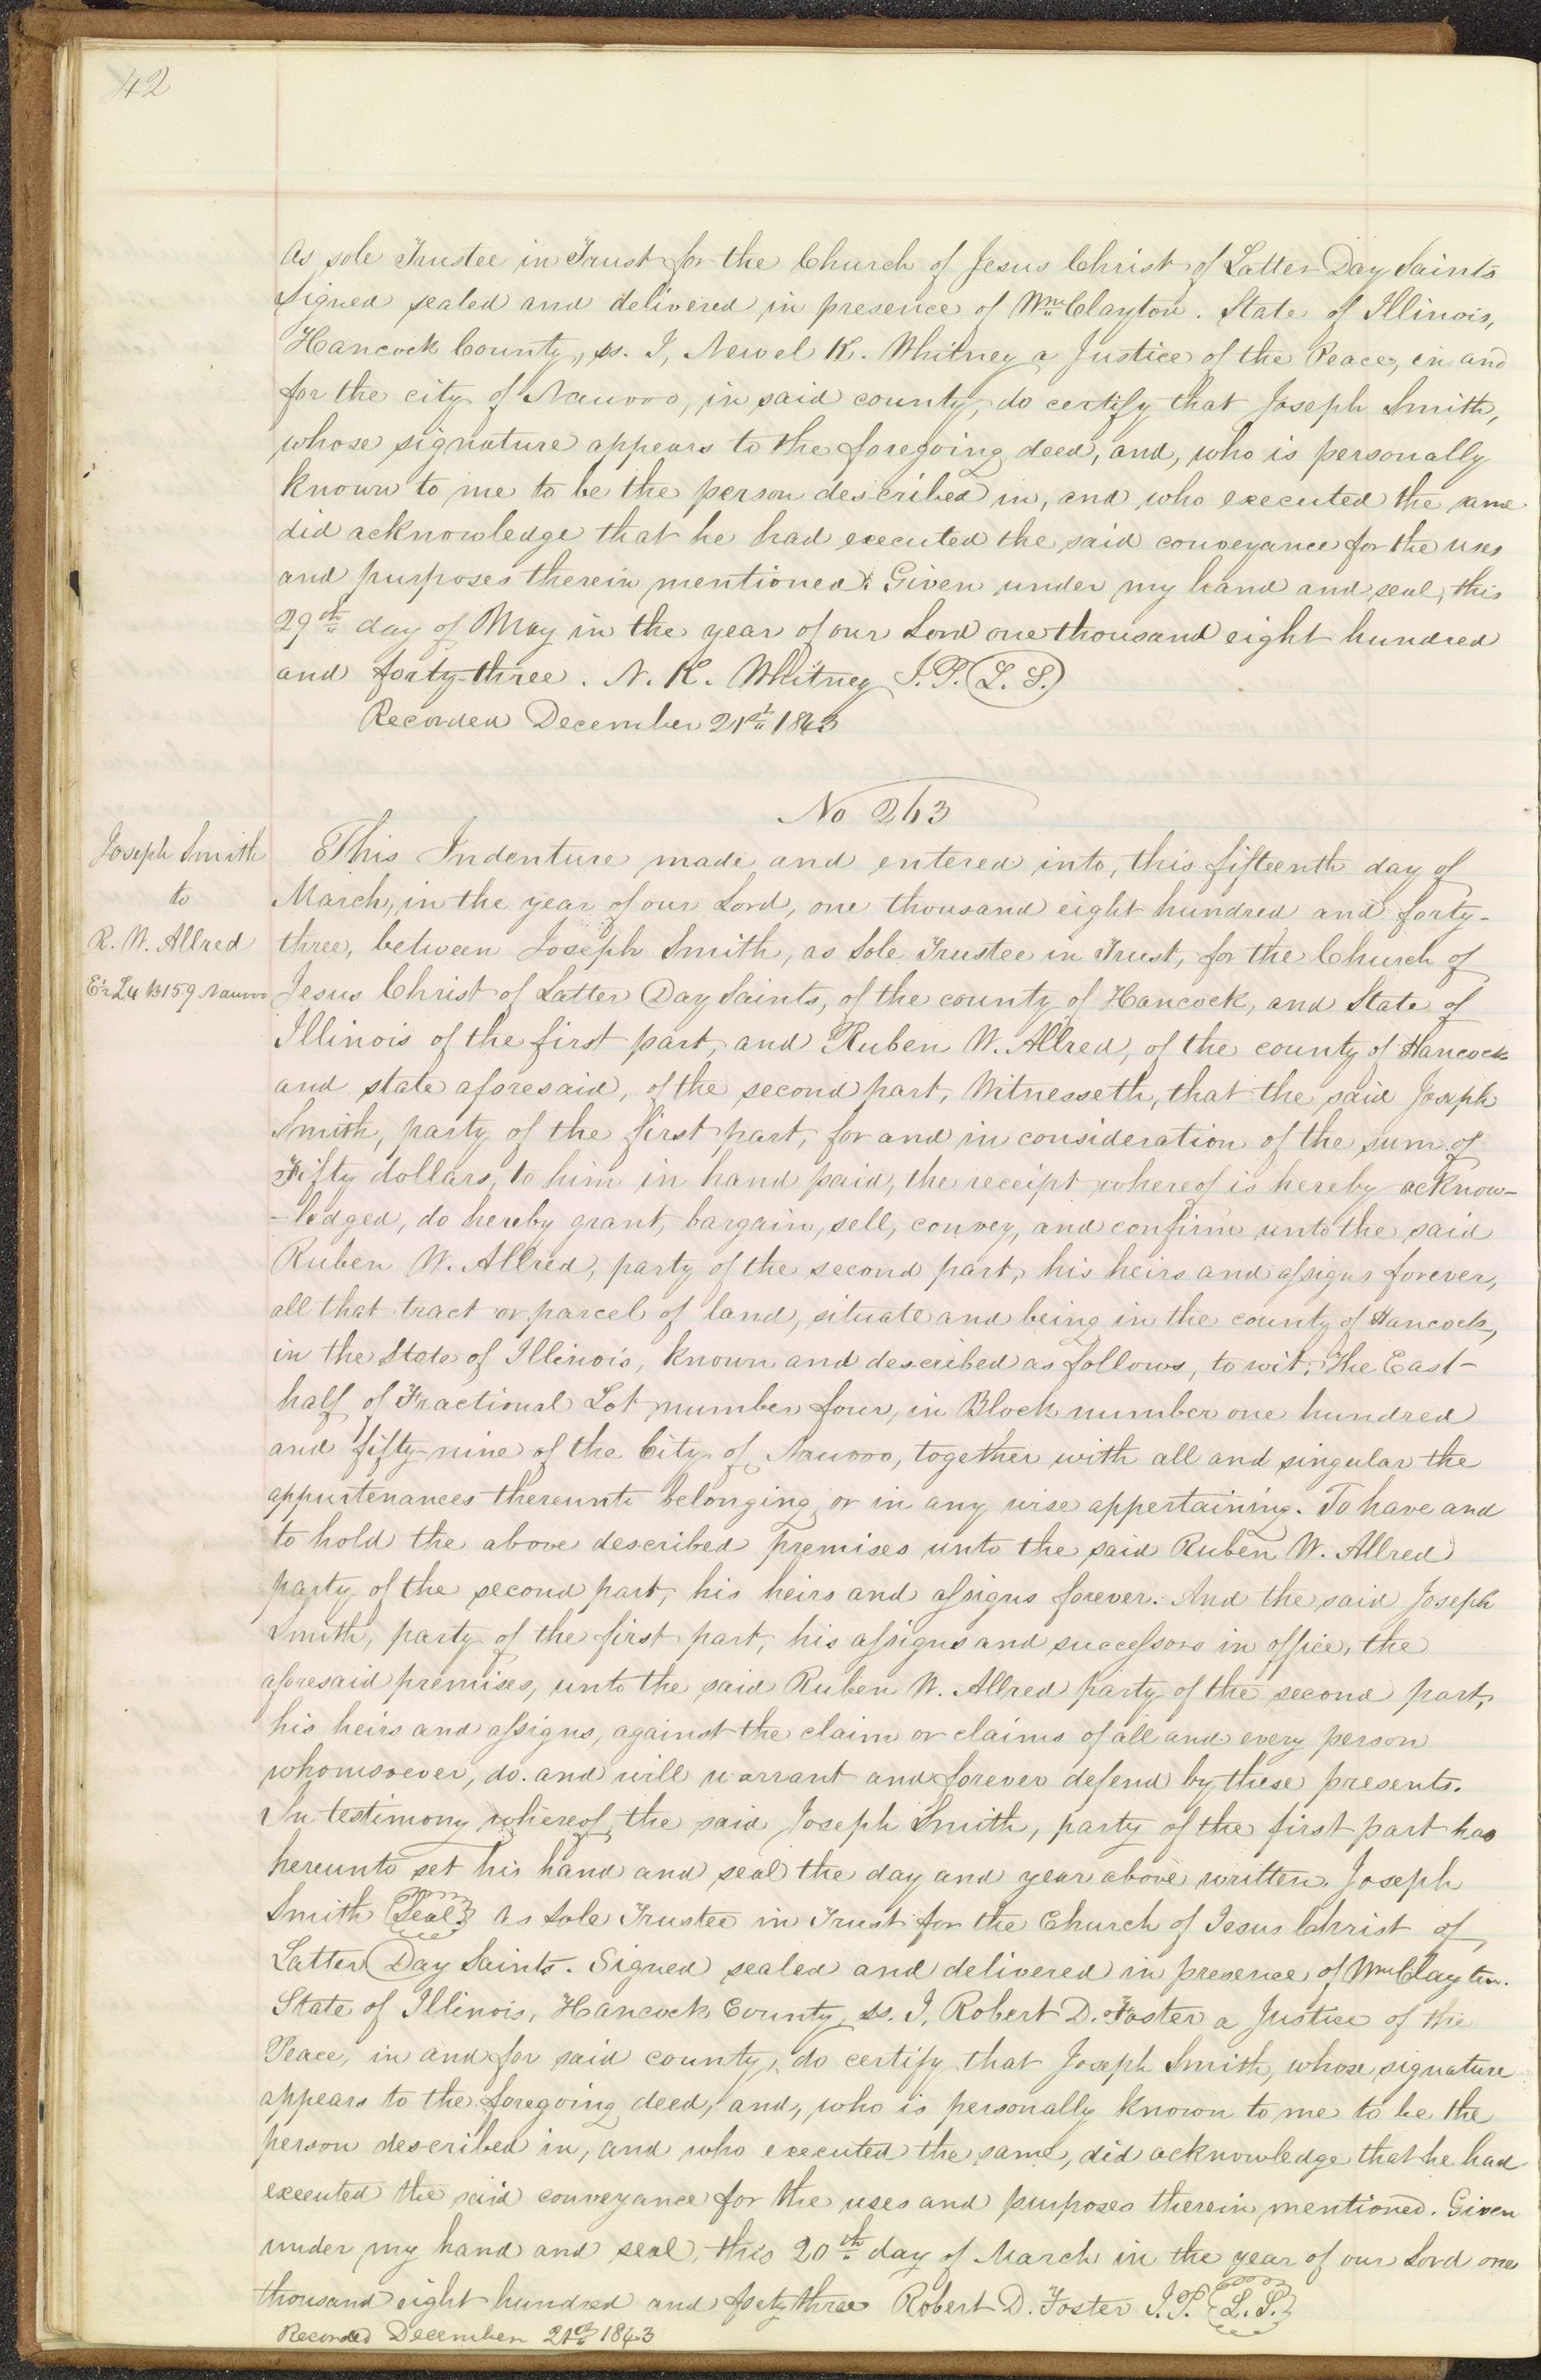 42
As sole Trustee in Trust for the Church of Jesus Christ of Latter Day Saints
Signed sealed and delivered in presence of Wm Clayton. State of Illinois,
Hancock County, ss. I, Newel K. Whitney a Justice of the Peace, in and
for the city of Nauvoo, in said county, do certify that Joseph Smith,
whose signature appears to the foregoing deed, and, who is personally
known to me to be the person described in, and who executed the same
did acknowledge that he had executed the said conveyance for the uses
and purposes therein mentioned. Given under my hand and seal, this
29th day of May in the year of our Lord one thousand eight hundred
and forty-three. N. K. Whitney J.P. (L. S.)
Recorded December 21st 1843
No 263
Joseph Smith
to
R. W. Allred
E½ L4 B159 Nauvoo
This Indenture made and entered into, this fifteenth day of
March, in the year of our Lord, one thousand eight hundred and forty-
three, between Joseph Smith, as Sole Trustee in Trust, for the Church of
Jesus Christ of Latter Day Saints, of the county of Hancock, and State of
Illinois of the first part, and Ruben W. Allred, of the county of Hancock
and state aforesaid, of the second part, Witnesseth, that the said Joseph
Smith, party of the first part, for and in consideration of the sum of
Fifty dollars, to him in hand paid, the receipt whereof is hereby acknow-
-ledged, do hereby grant, bargain, sell, convey, and confirm unto the said
Ruben W. Allred, party of the second part, his heirs and assigns forever,
all that tract or parcel of land, situate and being in the county of Hancock,
in the State of Illinois, known and described as follows, to wit: The East-
half of Fractional Lot number four, in Block number one hundred
and fifty-nine of the City of Nauvoo, together with all and singular the
appurtenances thereunto belonging or in any wise appertaining. To have and
to hold the above described premises unto the said Ruben W. Allred
party of the second part, his heirs and assigns forever. And the said Joseph
Smith, party of the first part, his assigns and successors in office, the
aforesaid premises, unto the said Ruben W. Allred party of the second part,
his heirs and assigns, against the claim or claims of all and every person
whomsoever, do and will warrant and forever defend by these presents.
In testimony whereof, the said Joseph Smith, party of the first part has
hereunto set his hand and seal the day and year above written. Joseph
Smith {Seal} As Sole Trustee in Trust for the Church of Jesus Christ of
Latter Day Saints. Signed sealed and delivered in presence of Wm Clayton.
State of Illinois, Hancock County, ss. I, Robert D. Foster a Justice of the
Peace, in and for said county, do certify that Joseph Smith, whose signature
appears to the foregoing deed, and, who is personally known to me to be the
person described in, and who executed the same, did acknowledge that he had
executed the said conveyance for the uses and purposes therein mentioned. Given
under my hand and seal, this 20th day of March in the year of our Lord one
thousand eight hundred and forty three Robert D. Foster J.P. {L.S.}
Recorded December 21st 1843